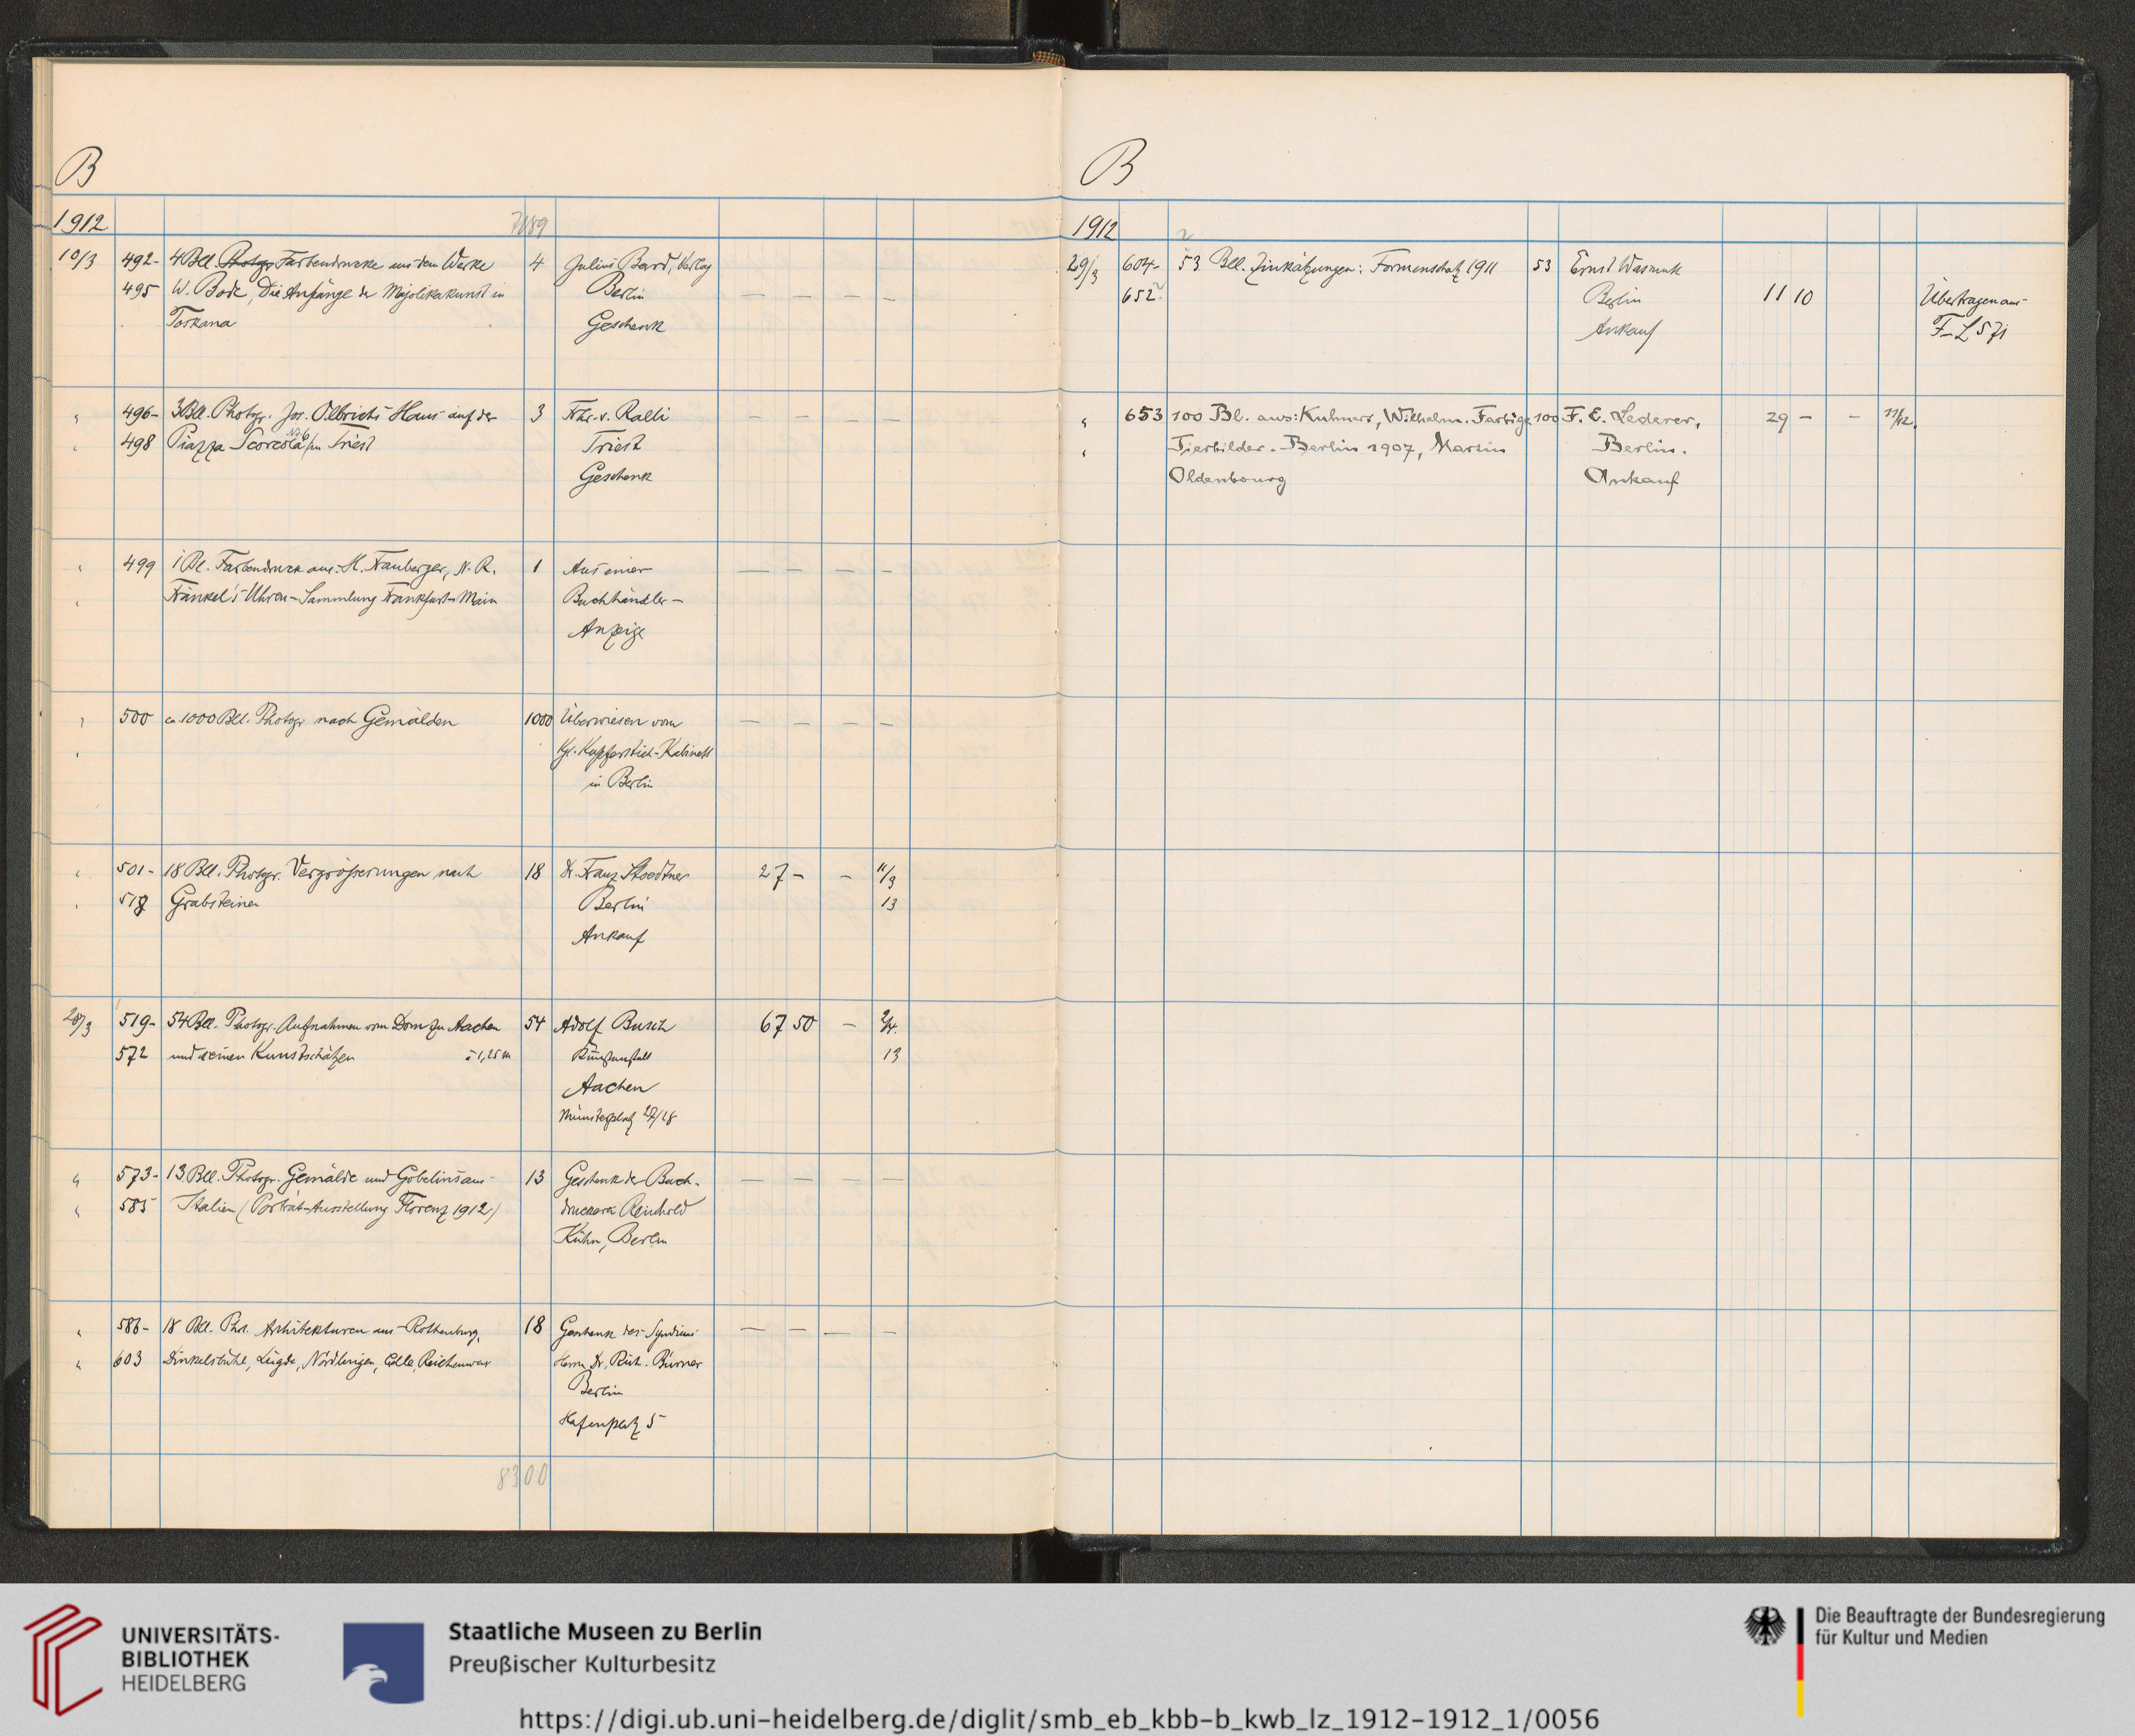 B
1912
7189
10/3 492- 4 Bll. Photogr. Farbendrucke aus dem Werke 4 Julius Bard, Verlag
495 W. Bode, Die Anfänge der Majolikakunst in Berlin — — — —
Toskana Geschenk
" 496- 3 Bll. Photogr. Jos. Olbrichs Haus auf der 3 Frhr. v. Ralli — — — —
" 498 Piazza N. 6 in Triest Triest
Geschenk
" 499 1 Bl. Farbendruck aus: H. Frauberger, N. R. 1 Aus einer — — — —
" Fränkel's Uhren-Sammlung Frankfurt-Main Buchhändler-
Anzeige
" 500 ca. 1000 Bll. Photogr. nach Gemälden 1000 Überwiesen vom — — — —
" Kgl. Kupferstich-Kabinett
in Berlin
" 501- 18 Bll. Photogr. Vergrößerungen nach 18 Dr. Franz Stoedtner 27 - - 11/9
" 518 Grabsteinen Berlin 13
Ankauf
28/3 519- 54 Bll. Photogr. Aufnahmen vom Dom zu Aachen 54 Adolf Busch 67 50 - 2/4.
572 und seinen Kunstschätzen à 1,25 M Kunstanstalt 13
Aachen
Münsterplatz 27/28
" 573- 13 Bll. Photogr. Gemälde und Gobelins aus 13 Geschenk der Buch- — — — —
" 585 Italien (Porträt-Ausstellung Florenz 1912) druckerei Reinhold
Kühn, Berlin
" 586- 18 Bll. Phot. Architekturen aus Rothenburg, 18 Geschenk des Syndikus — — — —
" 603 Dinkelsbühl, Lügde, Nördlingen, Celle, Herrn Dr. Burner
Berlin
Hafenplatz 5
8300
B
1912
29/3 604- 53 Bll. Zinkätzungen: Formenschatz 1911 53 Ernst Wasmuth
652 Berlin 11 10 Übertragen aus
Ankauf F-L 571
" 653 100 Bl. aus: Kuhnert, Wilhelm. Farbige 100 F. E. Lederer, 29 - - 11/12.
" Tierbilder. Berlin 1907, Martin Berlin.
Oldenbourg Ankauf
UNIVERSITÄTS-
BIBLIOTHEK
HEIDELBERG
Staatliche Museen zu Berlin
Preußischer Kulturbesitz
Die Beauftragte der Bundesregierung
für Kultur und Medien
https://digi.ub.uni-heidelberg.de/diglit/smb_eb_kbb-b_kwb_lz_1912-1912_1/0056